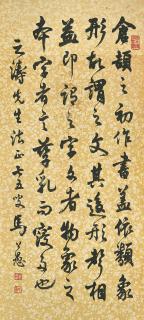 倉頡之初作書蓋依類象
形故謂之文其後形聲相
益即謂之字文者物象之
本字者言孳乳而寖多也
濤先生法正七五叟馬公愚